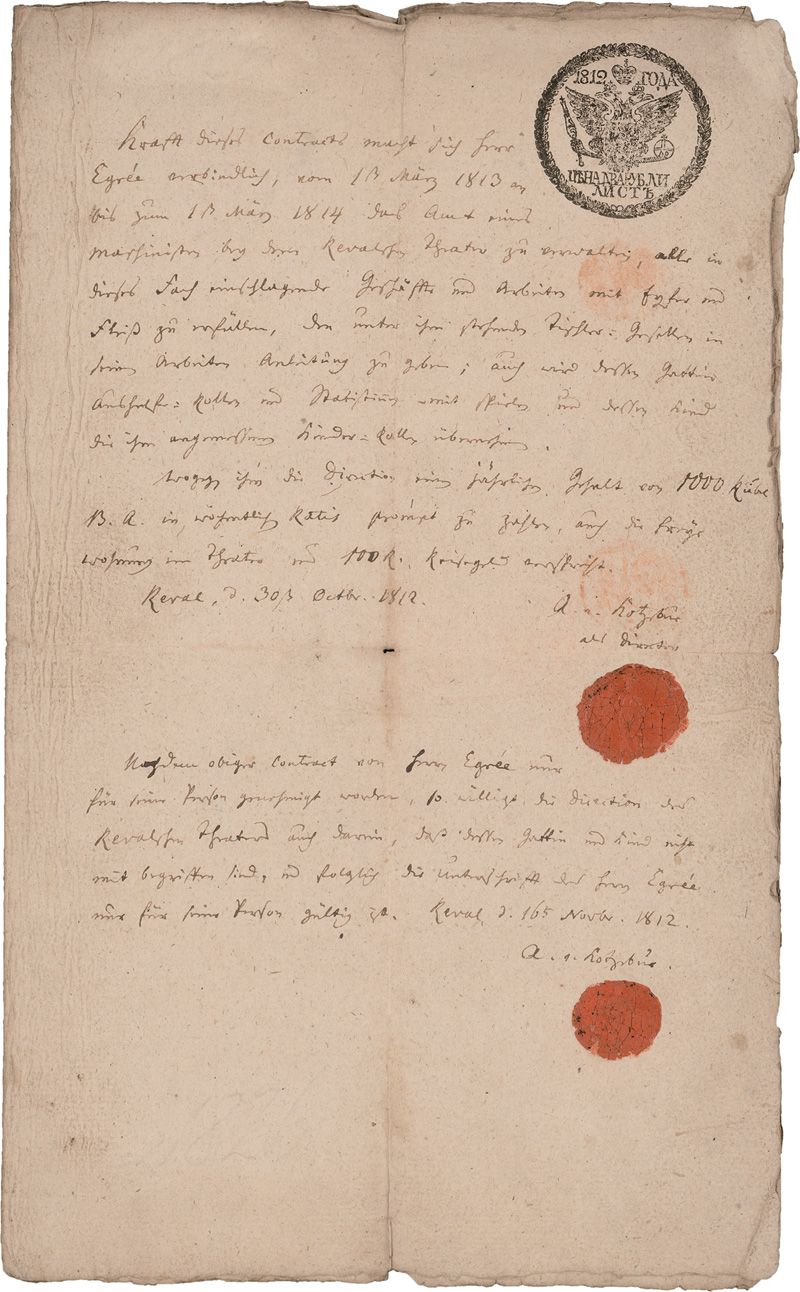 1812 ГОДА
ЦѢНА ДВА РУБЛИ
ЛИСТЪ
Kraft dieses Contracts macht sich Herr
Egrée verbindlich, vom 1ten März 1813 an
bis zum 1ten März 1814 das Amt eines
Maschinisten bey dem Revalschen Theater zu verwalten, alle in
dieses Fach einschlagende Geschäffte und Arbeiten mit Eyfer und
Fleiß zu erfüllen, den unter ihm stehenden Tischler-Gesellen in
seinen Arbeiten Anleitung zu geben; auch wird dessen Gattin
Aushelfe-Rollen und Statistinn mit spielen und dessen Kind
die ihm angemessenen Kinder-Rollen übernehmen.
Wogegen ihm die Direction einen jährlichen Gehalt von 1000 Rubel
B. A. in wöchentlichen Ratis prompt zu zahlen, auch die freye
Wohnung im Theater und 100 R. Reisegeld verspricht.
Reval, d. 30st Octbr. 1812.
A. v. Kotzebue
als Director
Nachdem obiger Contract von Herrn Egrée nur
für seine Person genehmigt worden, so willigt die Direction des
Revalschen Theaters auch darein, daß dessen Gattin und Kind nicht
mit begriffen sind, und folglich die Unterschrifft des Herrn Egrée
nur für seine Person gültig ist. Reval, d. 16t Novbr. 1812.
A. v. Kotzebue.